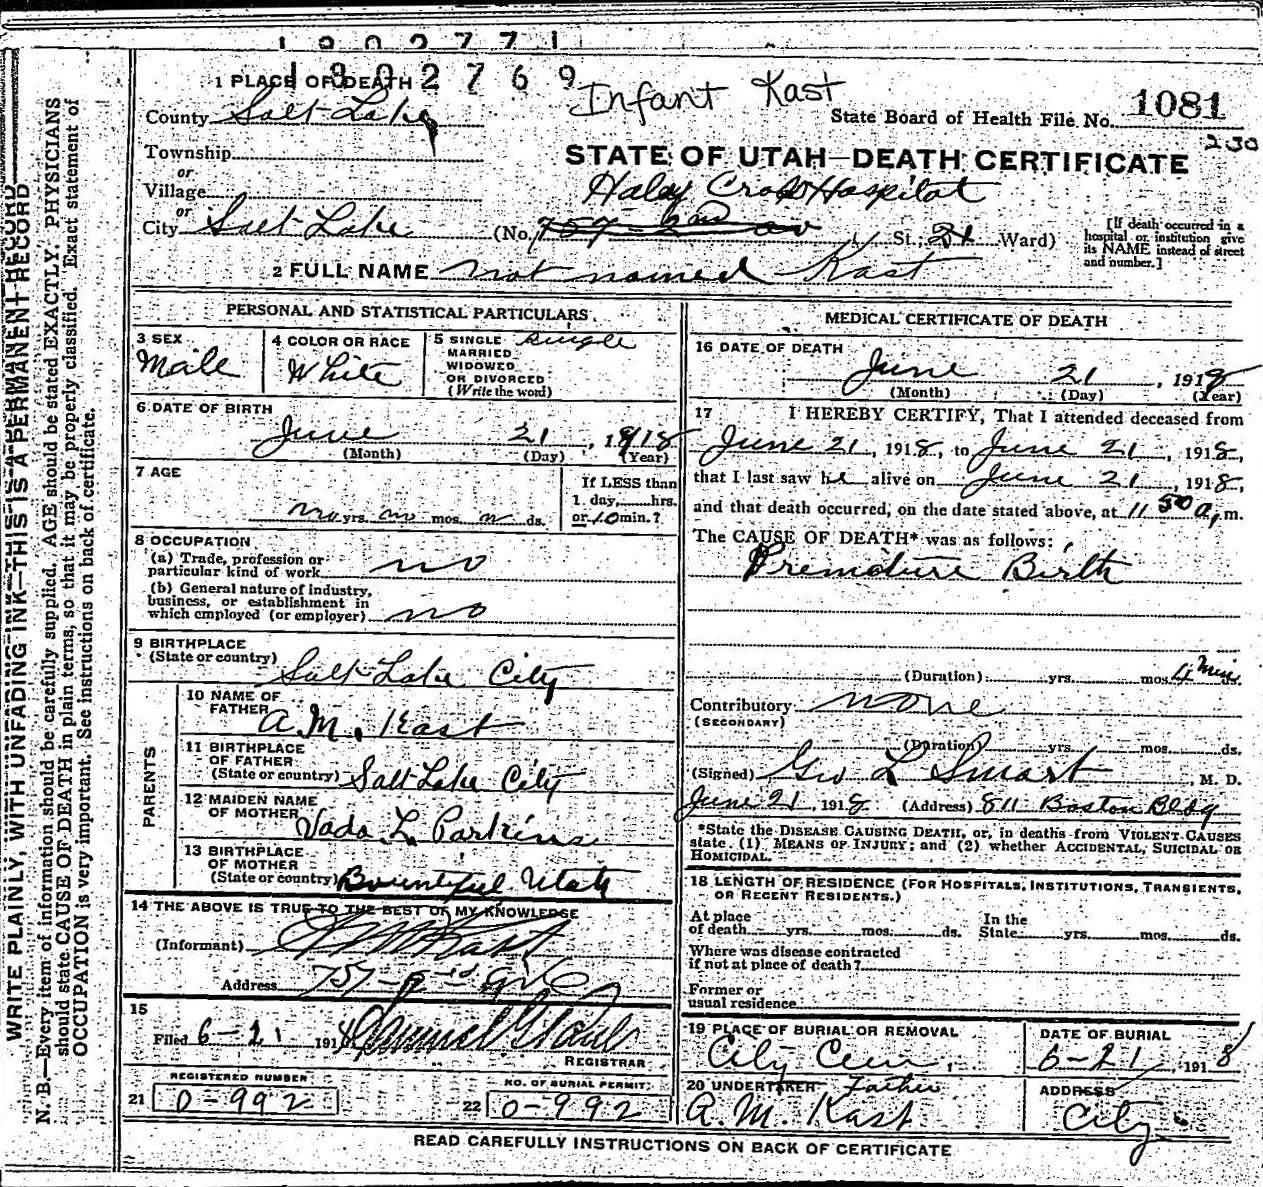 1302769
Infant Kast
1 PLACE OF DEATH
County Salt Lake
State Board of Health File No. 1081
230
Township
or
Village
or
City Salt Lake
STATE OF UTAH—DEATH CERTIFICATE
Holy Cross Hospital
(No. 757 - 2nd av St.; 21 Ward)
[If death occurred in a
hospital or institution give
its NAME instead of street
and number.]
2 FULL NAME not named Kast
PERSONAL AND STATISTICAL PARTICULARS
3 SEX
Male
4 COLOR OR RACE
White
5 SINGLE
MARRIED
WIDOWED
OR DIVORCED
(Write the word)
Single
6 DATE OF BIRTH
June 21, 1918
(Month) (Day) (Year)
7 AGE
no yrs. no mos. n ds.
If LESS than
1 day, hrs.
or 10 min.?
8 OCCUPATION
(a) Trade, profession or
particular kind of work no
(b) General nature of industry,
business, or establishment in
which employed (or employer) no
9 BIRTHPLACE
(State or country)
Salt Lake City
PARENTS
10 NAME OF
FATHER
A.M. Kast
11 BIRTHPLACE
OF FATHER
(State or country) Salt Lake City
12 MAIDEN NAME
OF MOTHER
Vada L. Parkins
13 BIRTHPLACE
OF MOTHER
(State or country) Bountiful Utah
14 THE ABOVE IS TRUE TO THE BEST OF MY KNOWLEDGE
(Informant) A M Kast
Address 757
15
Filed 6-21 1918
REGISTRAR
REGISTERED NUMBER
21 0-992
NO. OF BURIAL PERMIT
22 0-992
MEDICAL CERTIFICATE OF DEATH
16 DATE OF DEATH
June 21, 1918
(Month) (Day) (Year)
17 I HEREBY CERTIFY, That I attended deceased from
June 21, 1918, to June 21, 1918,
that I last saw h alive on June 21, 1918,
and that death occurred, on the date stated above, at 11 50 a. m.
The CAUSE OF DEATH* was as follows:
Premature Birth
(Duration) yrs. mos. 4 Min ds.
Contributory none
(SECONDARY)
(Duration) yrs. mos. ds.
(Signed) Geo L Smart M. D.
June 21, 1918 (Address) 811 Boston Bldg
*State the DISEASE CAUSING DEATH, or, in deaths from VIOLENT CAUSES
state (1) MEANS OF INJURY; and (2) whether ACCIDENTAL, SUICIDAL OR
HOMICIDAL.
18 LENGTH OF RESIDENCE (FOR HOSPITALS, INSTITUTIONS, TRANSIENTS,
OR RECENT RESIDENTS.)
At place
of death yrs. mos. ds.
In the
State yrs. mos. ds.
Where was disease contracted
if not at place of death?
Former or
usual residence
19 PLACE OF BURIAL OR REMOVAL
City Cem.
DATE OF BURIAL
6-21, 1918
20 UNDERTAKER Father
A. M. Kast
ADDRESS
City
READ CAREFULLY INSTRUCTIONS ON BACK OF CERTIFICATE
WRITE PLAINLY, WITH UNFADING INK—THIS IS A PERMANENT RECORD
N. B.—Every item of information should be carefully supplied. AGE should be stated EXACTLY. PHYSICIANS
should state CAUSE OF DEATH in plain terms, so that it may be properly classified. Exact statement of
OCCUPATION is very important. See instructions on back of certificate.